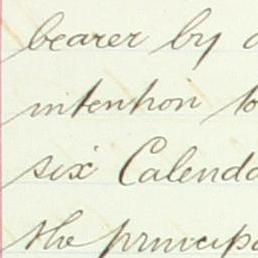 bearer by
intention to
six Calenda
the principa